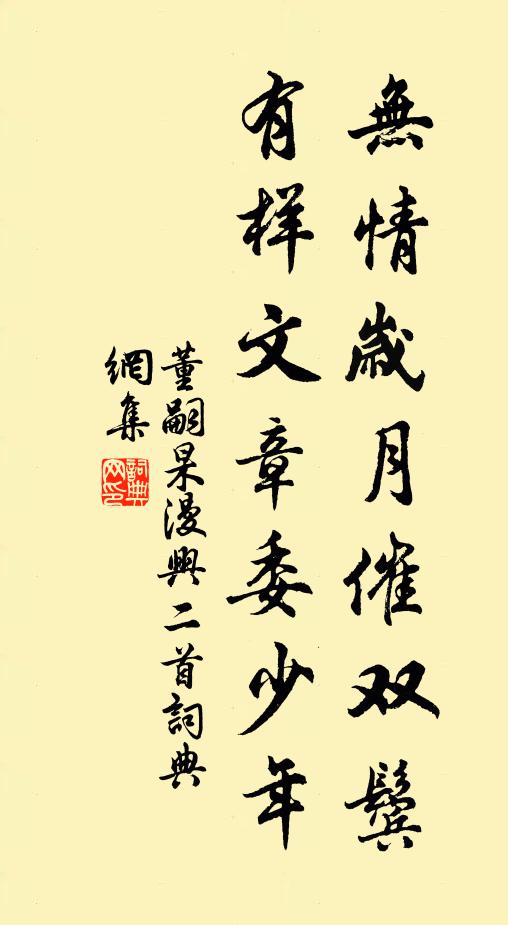 無情歲月催双鬓
有样文章委少年
董嗣杲漫興二首詞典
網集
詞典
网印